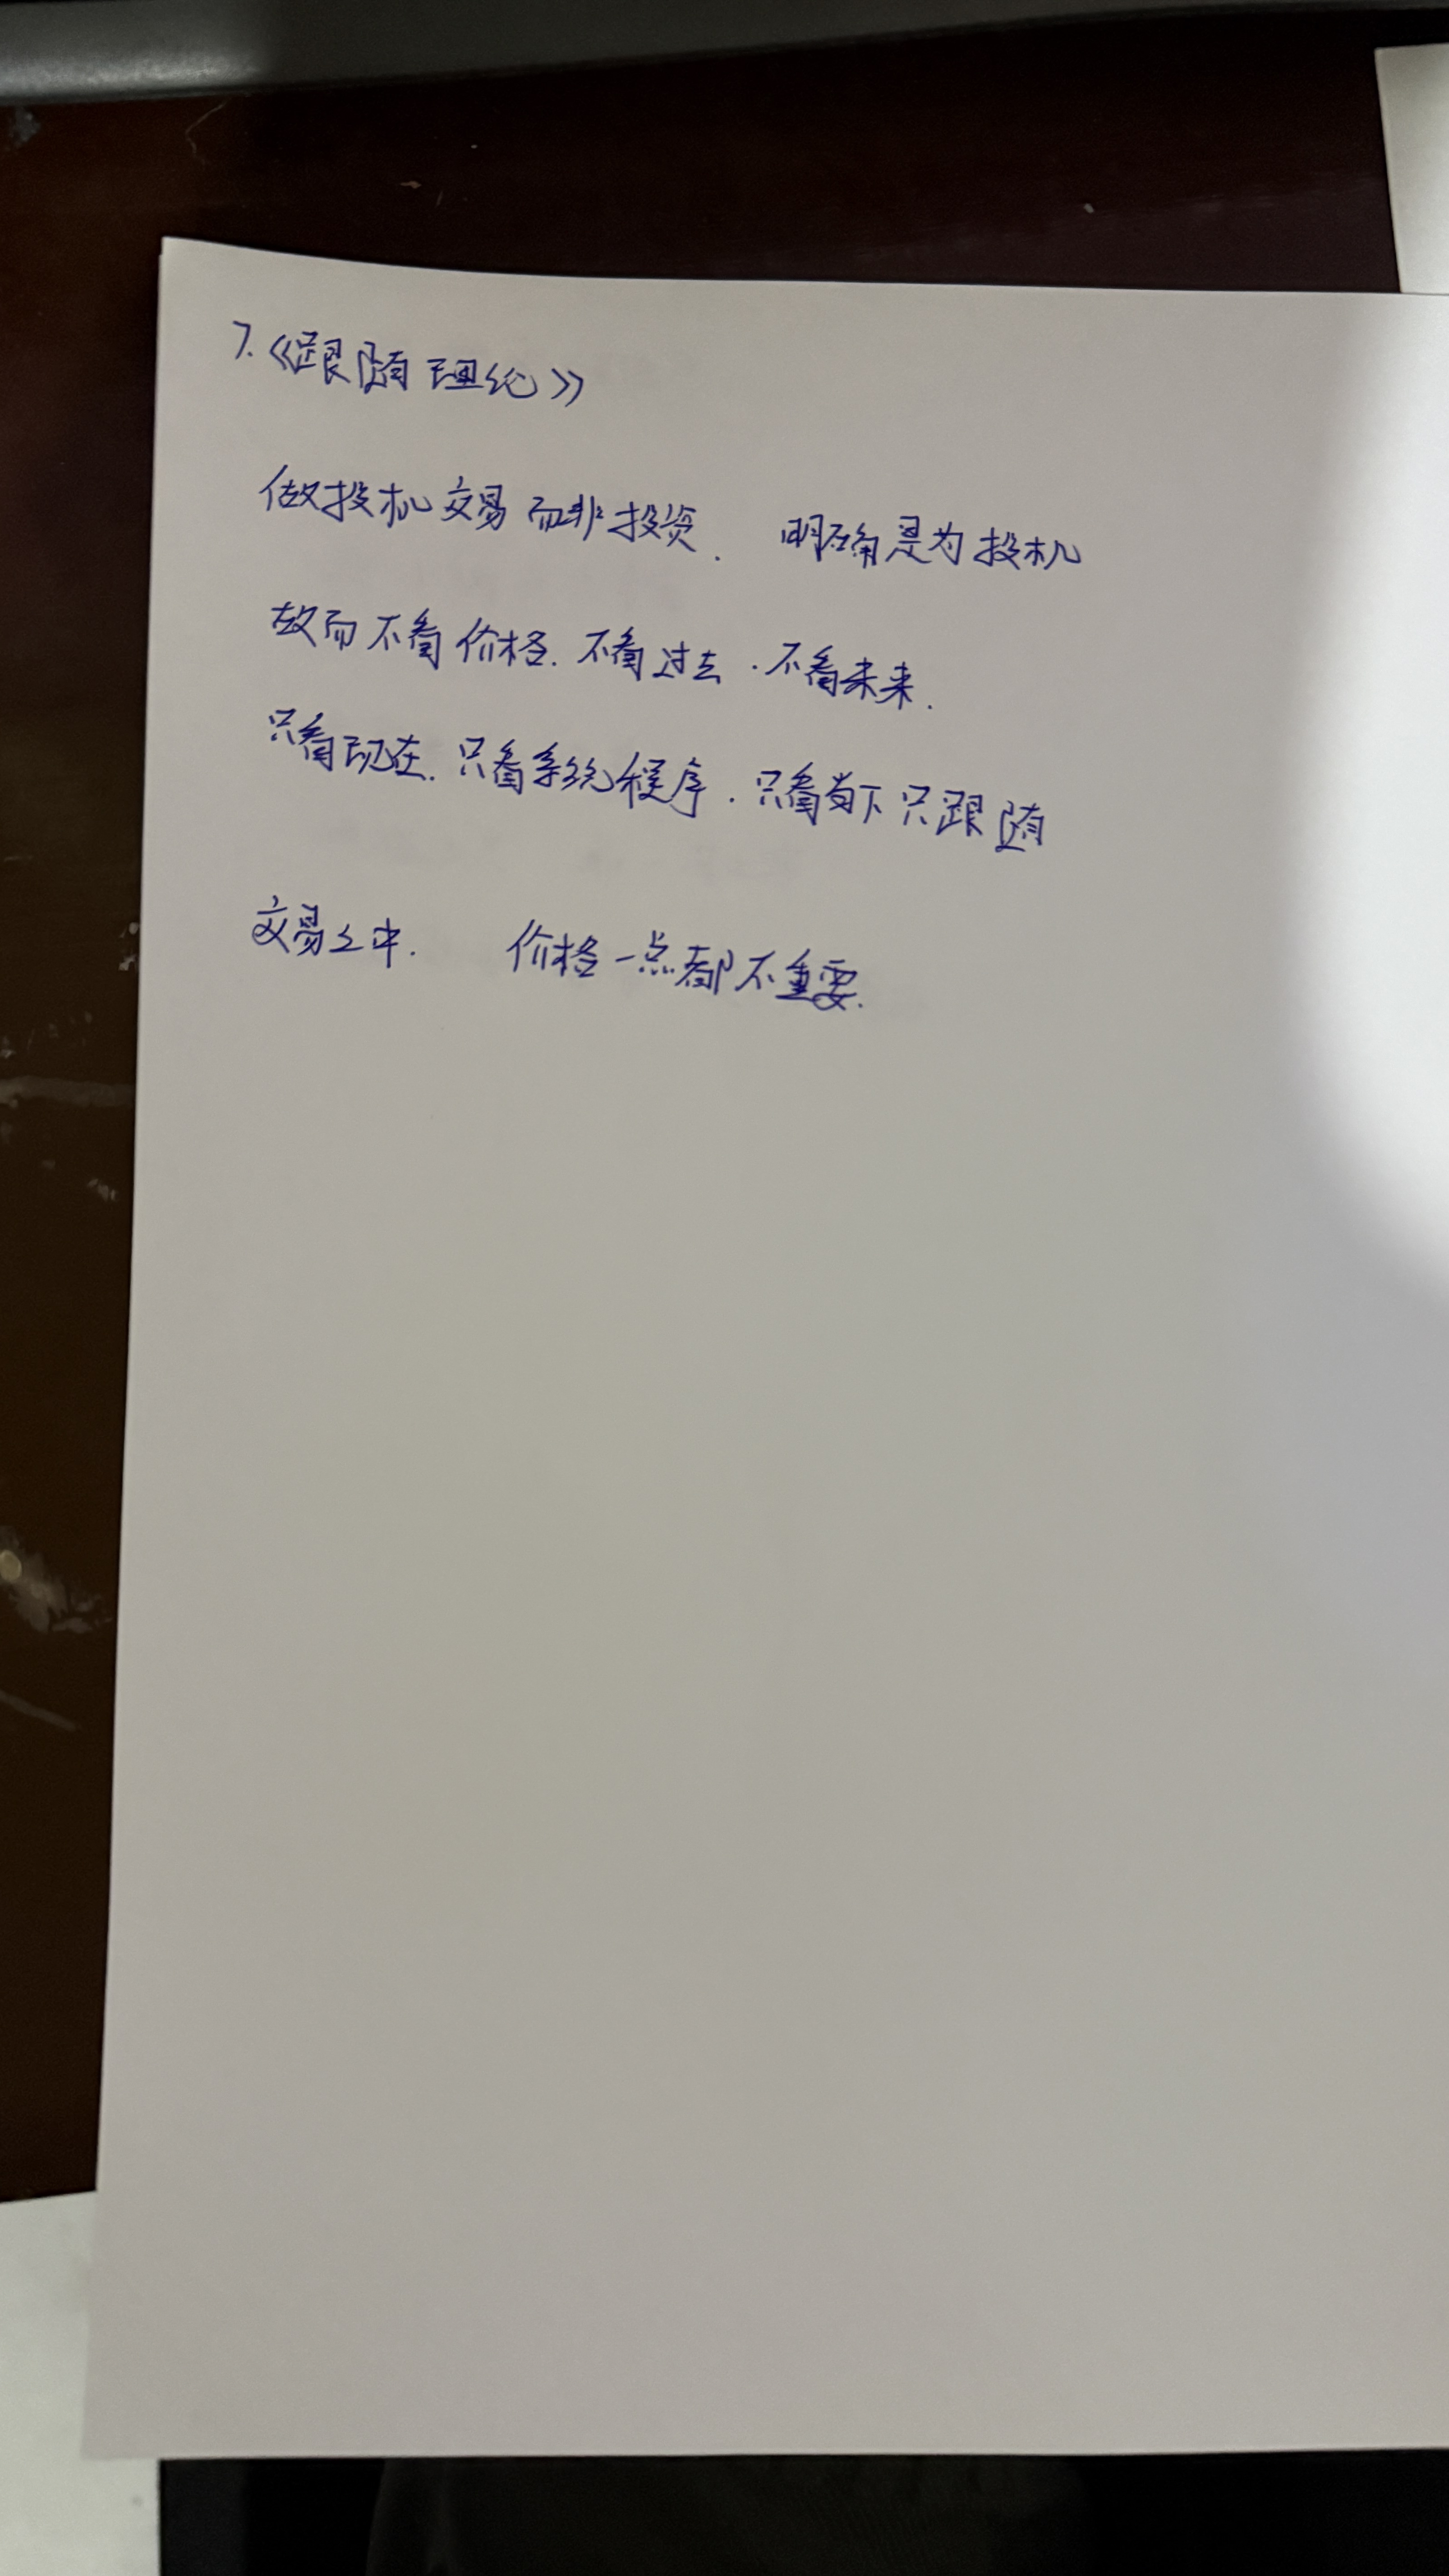 7.《跟随理论》
做投机交易而非投资. 明确是为投机
故而不看价格.不看过去.不看未来.
只看现在.只看系统程序.只看当下只跟随
交易之中. 价格一点都不重要.